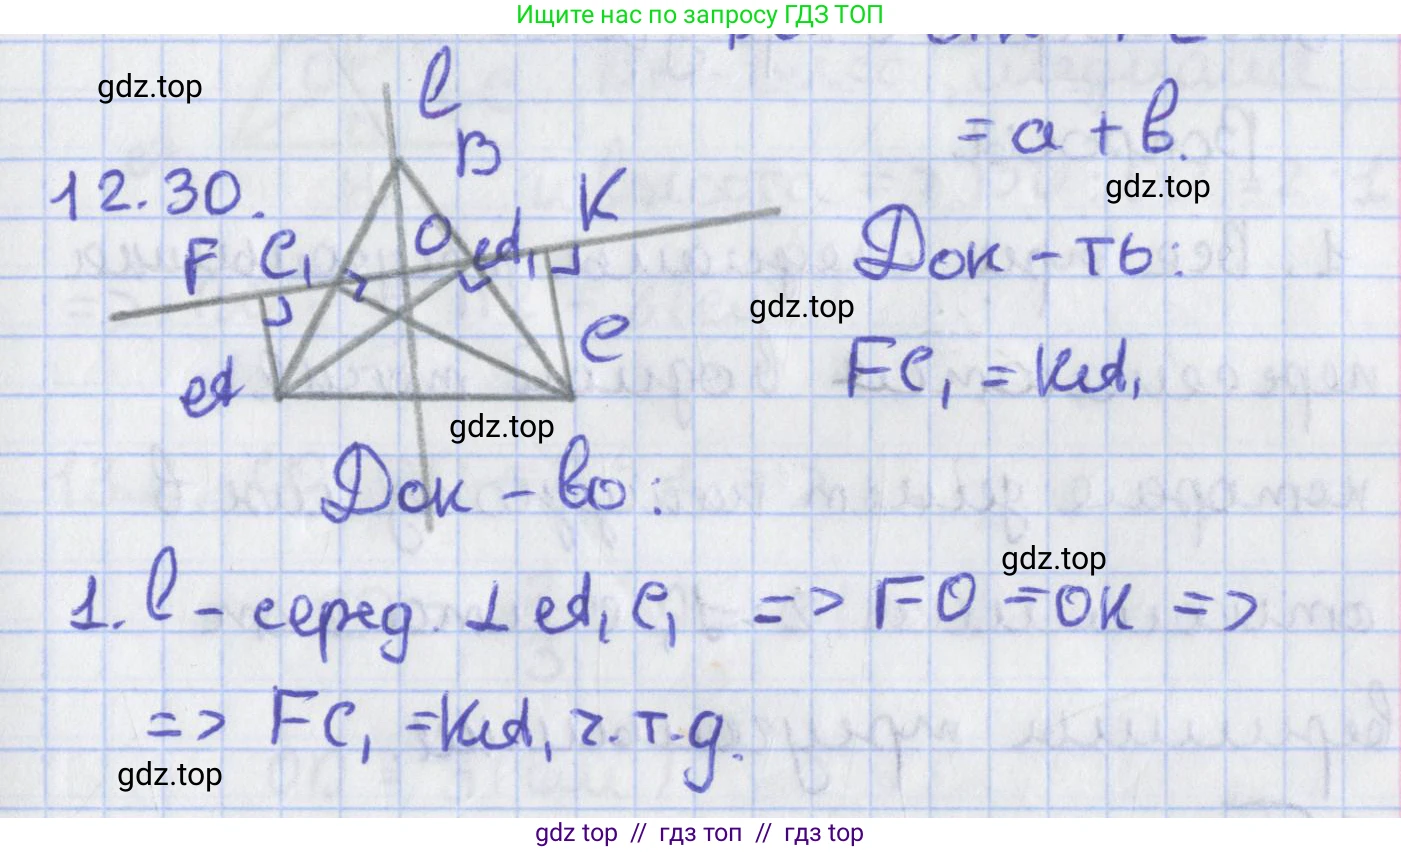 Ищите нас по запросу ГДЗ ТОП
gdz.top
l
B
= a + b.
gdz.top
12.30.
K
F C₁ O A₁
Док-ть:
gdz.top
C
FC₁ = KA₁
A
gdz.top
Док-во:
gdz.top
1. l - серед. ⊥ A₁C₁ => FO = OK =>
=> FC₁ = KA₁ ч.т.д.
gdz.top
gdz top // гдз топ // гдз top